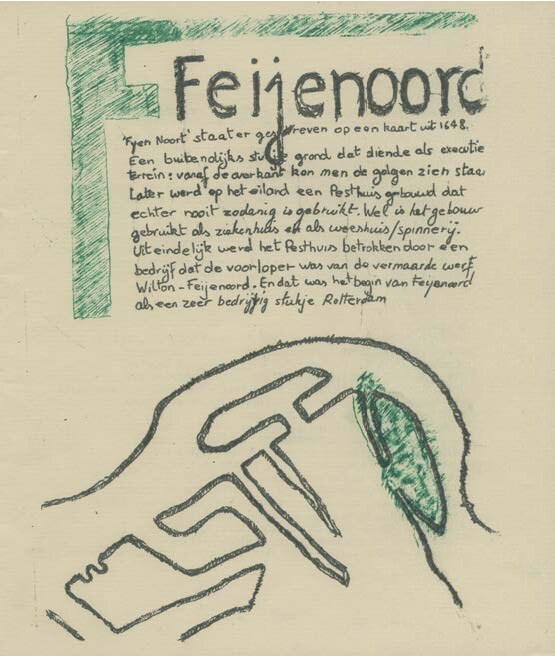 F
Feijenoord
'Fyen Noort' staat er geschreven op een kaart uit 1648.
Een buitendijks stukje grond dat diende als executie
terrein: vanaf de overkant kon men de galgen zien staan
Later werd op het eiland een Pesthuis gebouwd dat
echter nooit zodanig is gebruikt. Wel is het gebouw
gebruikt als ziekenhuis en als weeshuis/spinnerij.
Uiteindelijk werd het Pesthuis betrokken door een
bedrijf dat de voorloper was van de vermaarde werf
Wilton-Feijenoord. En dat was het begin van Feijenoord
als een zeer bedrijvig stukje Rotterdam